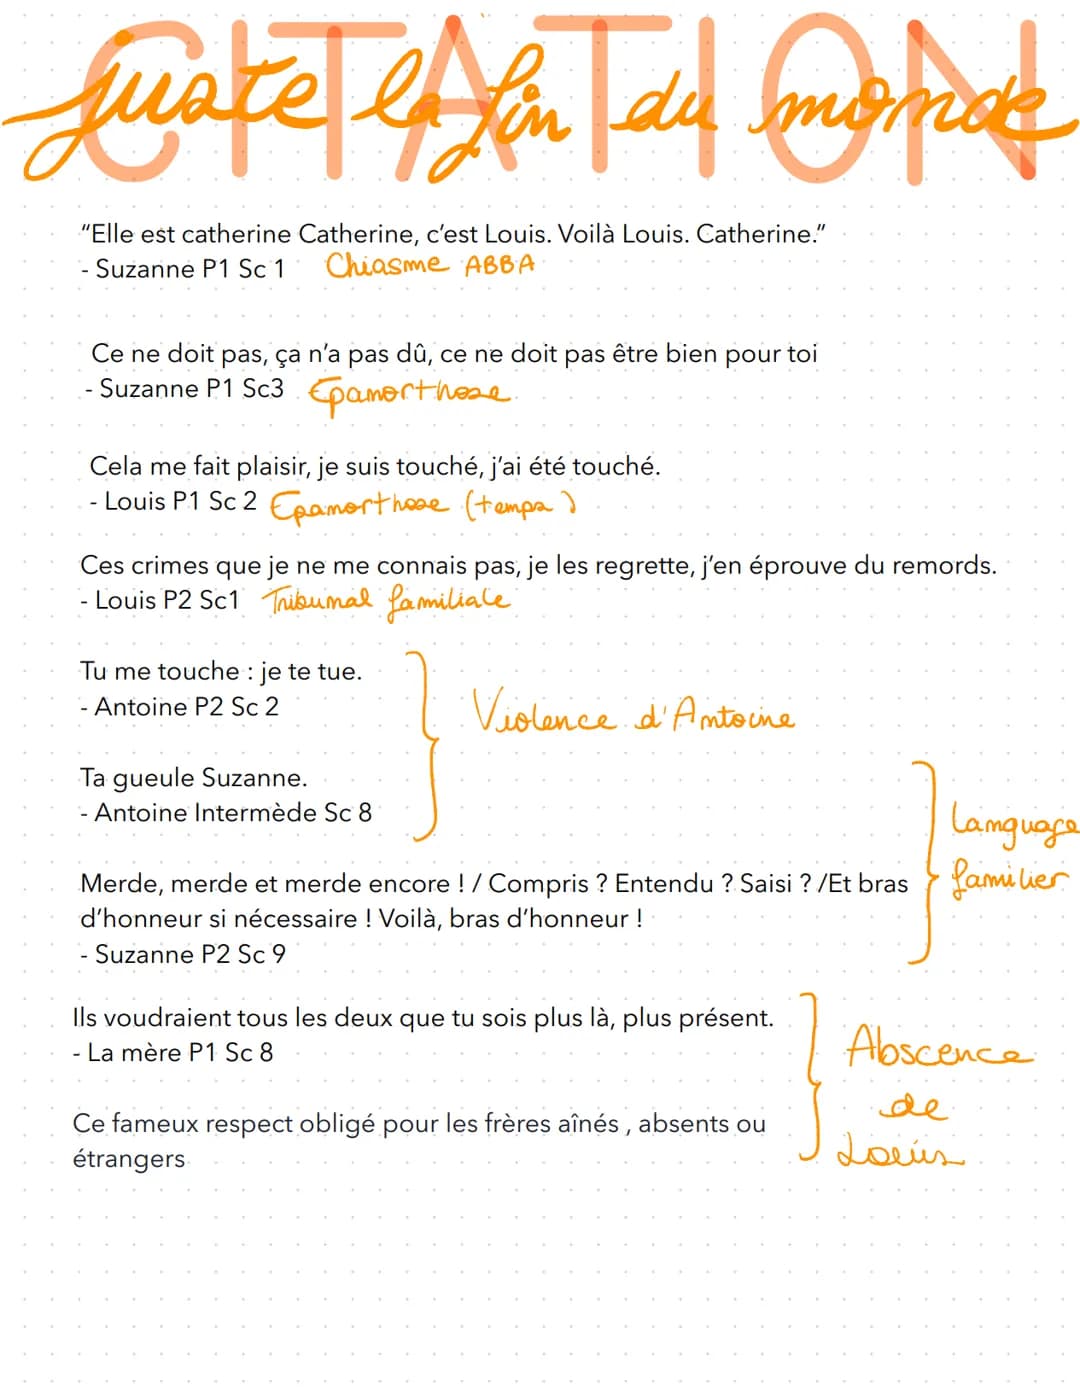 CITATION
juste la fin du monde
“Elle est catherine Catherine, c’est Louis. Voilà Louis. Catherine.”
- Suzanne P1 Sc 1 Chiasme ABBA
Ce ne doit pas, ça n’a pas dû, ce ne doit pas être bien pour toi
- Suzanne P1 Sc3 Epanorthose
Cela me fait plaisir, je suis touché, j’ai été touché.
- Louis P1 Sc 2 Epanorthose (temps)
Ces crimes que je ne me connais pas, je les regrette, j’en éprouve du remords.
- Louis P2 Sc1 Tribunal familiale
Tu me touche : je te tue.
- Antoine P2 Sc 2
Violence d'Antoine
Ta gueule Suzanne.
- Antoine Intermède Sc 8
Language
familier
Merde, merde et merde encore ! / Compris ? Entendu ? Saisi ? /Et bras
d’honneur si nécessaire ! Voilà, bras d’honneur !
- Suzanne P2 Sc 9
Ils voudraient tous les deux que tu sois plus là, plus présent.
- La mère P1 Sc 8
Abscence
de
Louis
Ce fameux respect obligé pour les frères aînés , absents ou
étrangers